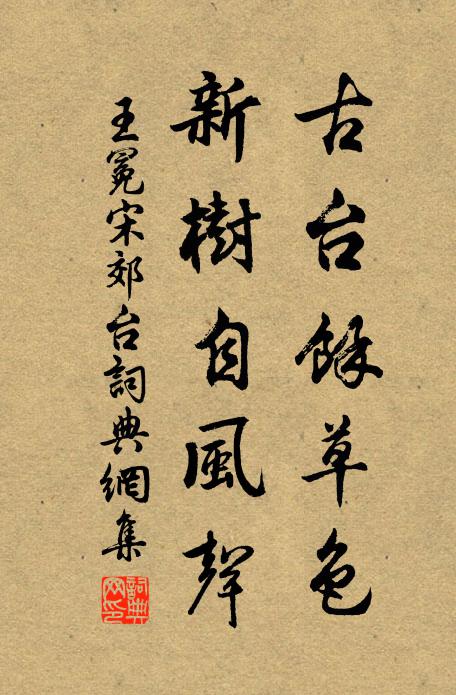 古台餘草色
新樹自風聲
王冕宋郊台詞典網集
詞典网印